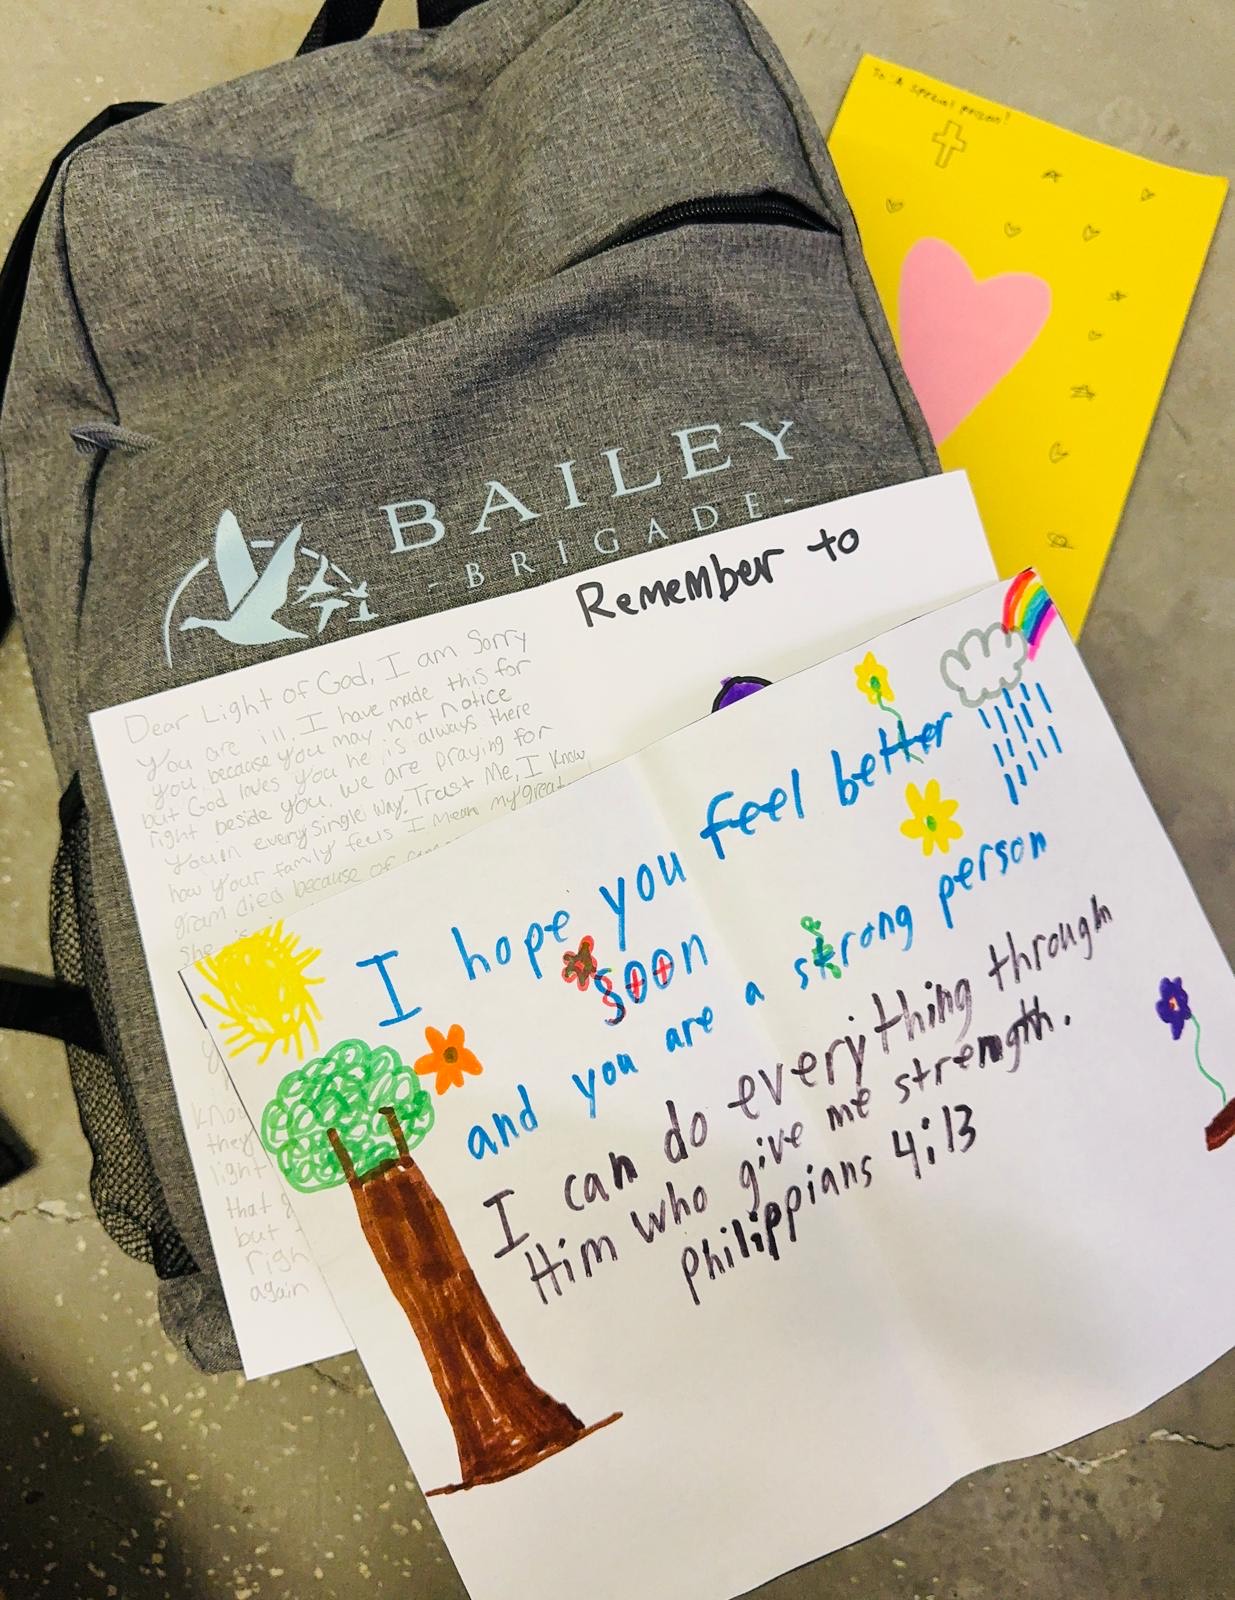 To: A special person!
BAILEY
-BRIGADE-
Remember to
Dear Light of God, I am Sorry
you are ill, I have made this for
you because you may not notice
but God loves you he is always there
right beside you. we are praying for
you in every single way. Trust Me, I know
how your family feels I mean my great
gram died because of
She is
know
they
light
that
but
righ
again
I hope you feel better
soon
and you are a strong person
I can do everything through
Him who give me strength.
Philippians 4:13